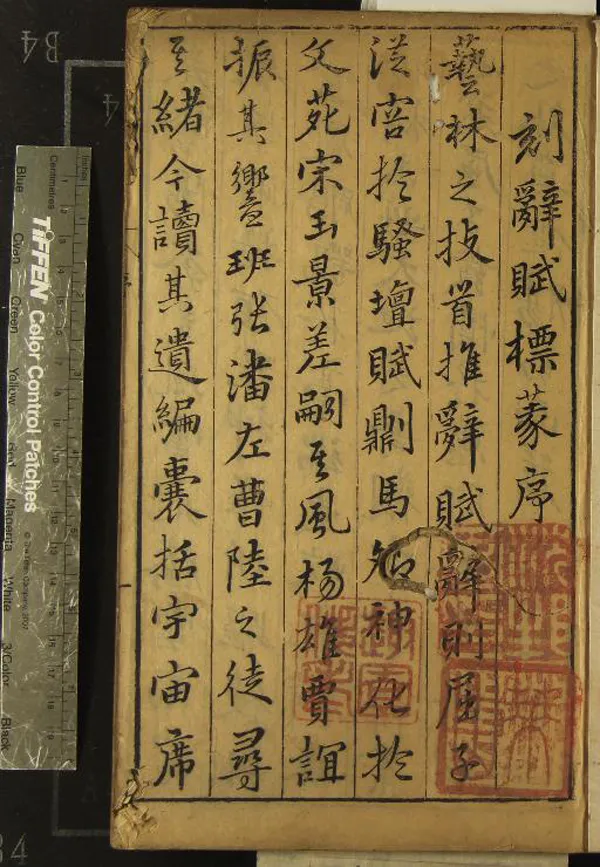 刻辭賦標義序
藝林之技首推辭賦辭則屈子
從容於騷壇賦則馬卿神化於
文苑宋玉景差嗣其風楊雄賈誼
振其響班張潘左曹陸之徒尋
其緒今讀其遺編囊括宇宙席
B4
4
Inches
Centimetres
TIFFEN Color Control Patches
Blue
Cyan
Green
Yellow
Red
Magenta
White
3/Color
Black
34